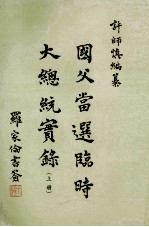 許師慎編纂
國父當選臨時
大總統實錄
(上册)
羅家倫書簽